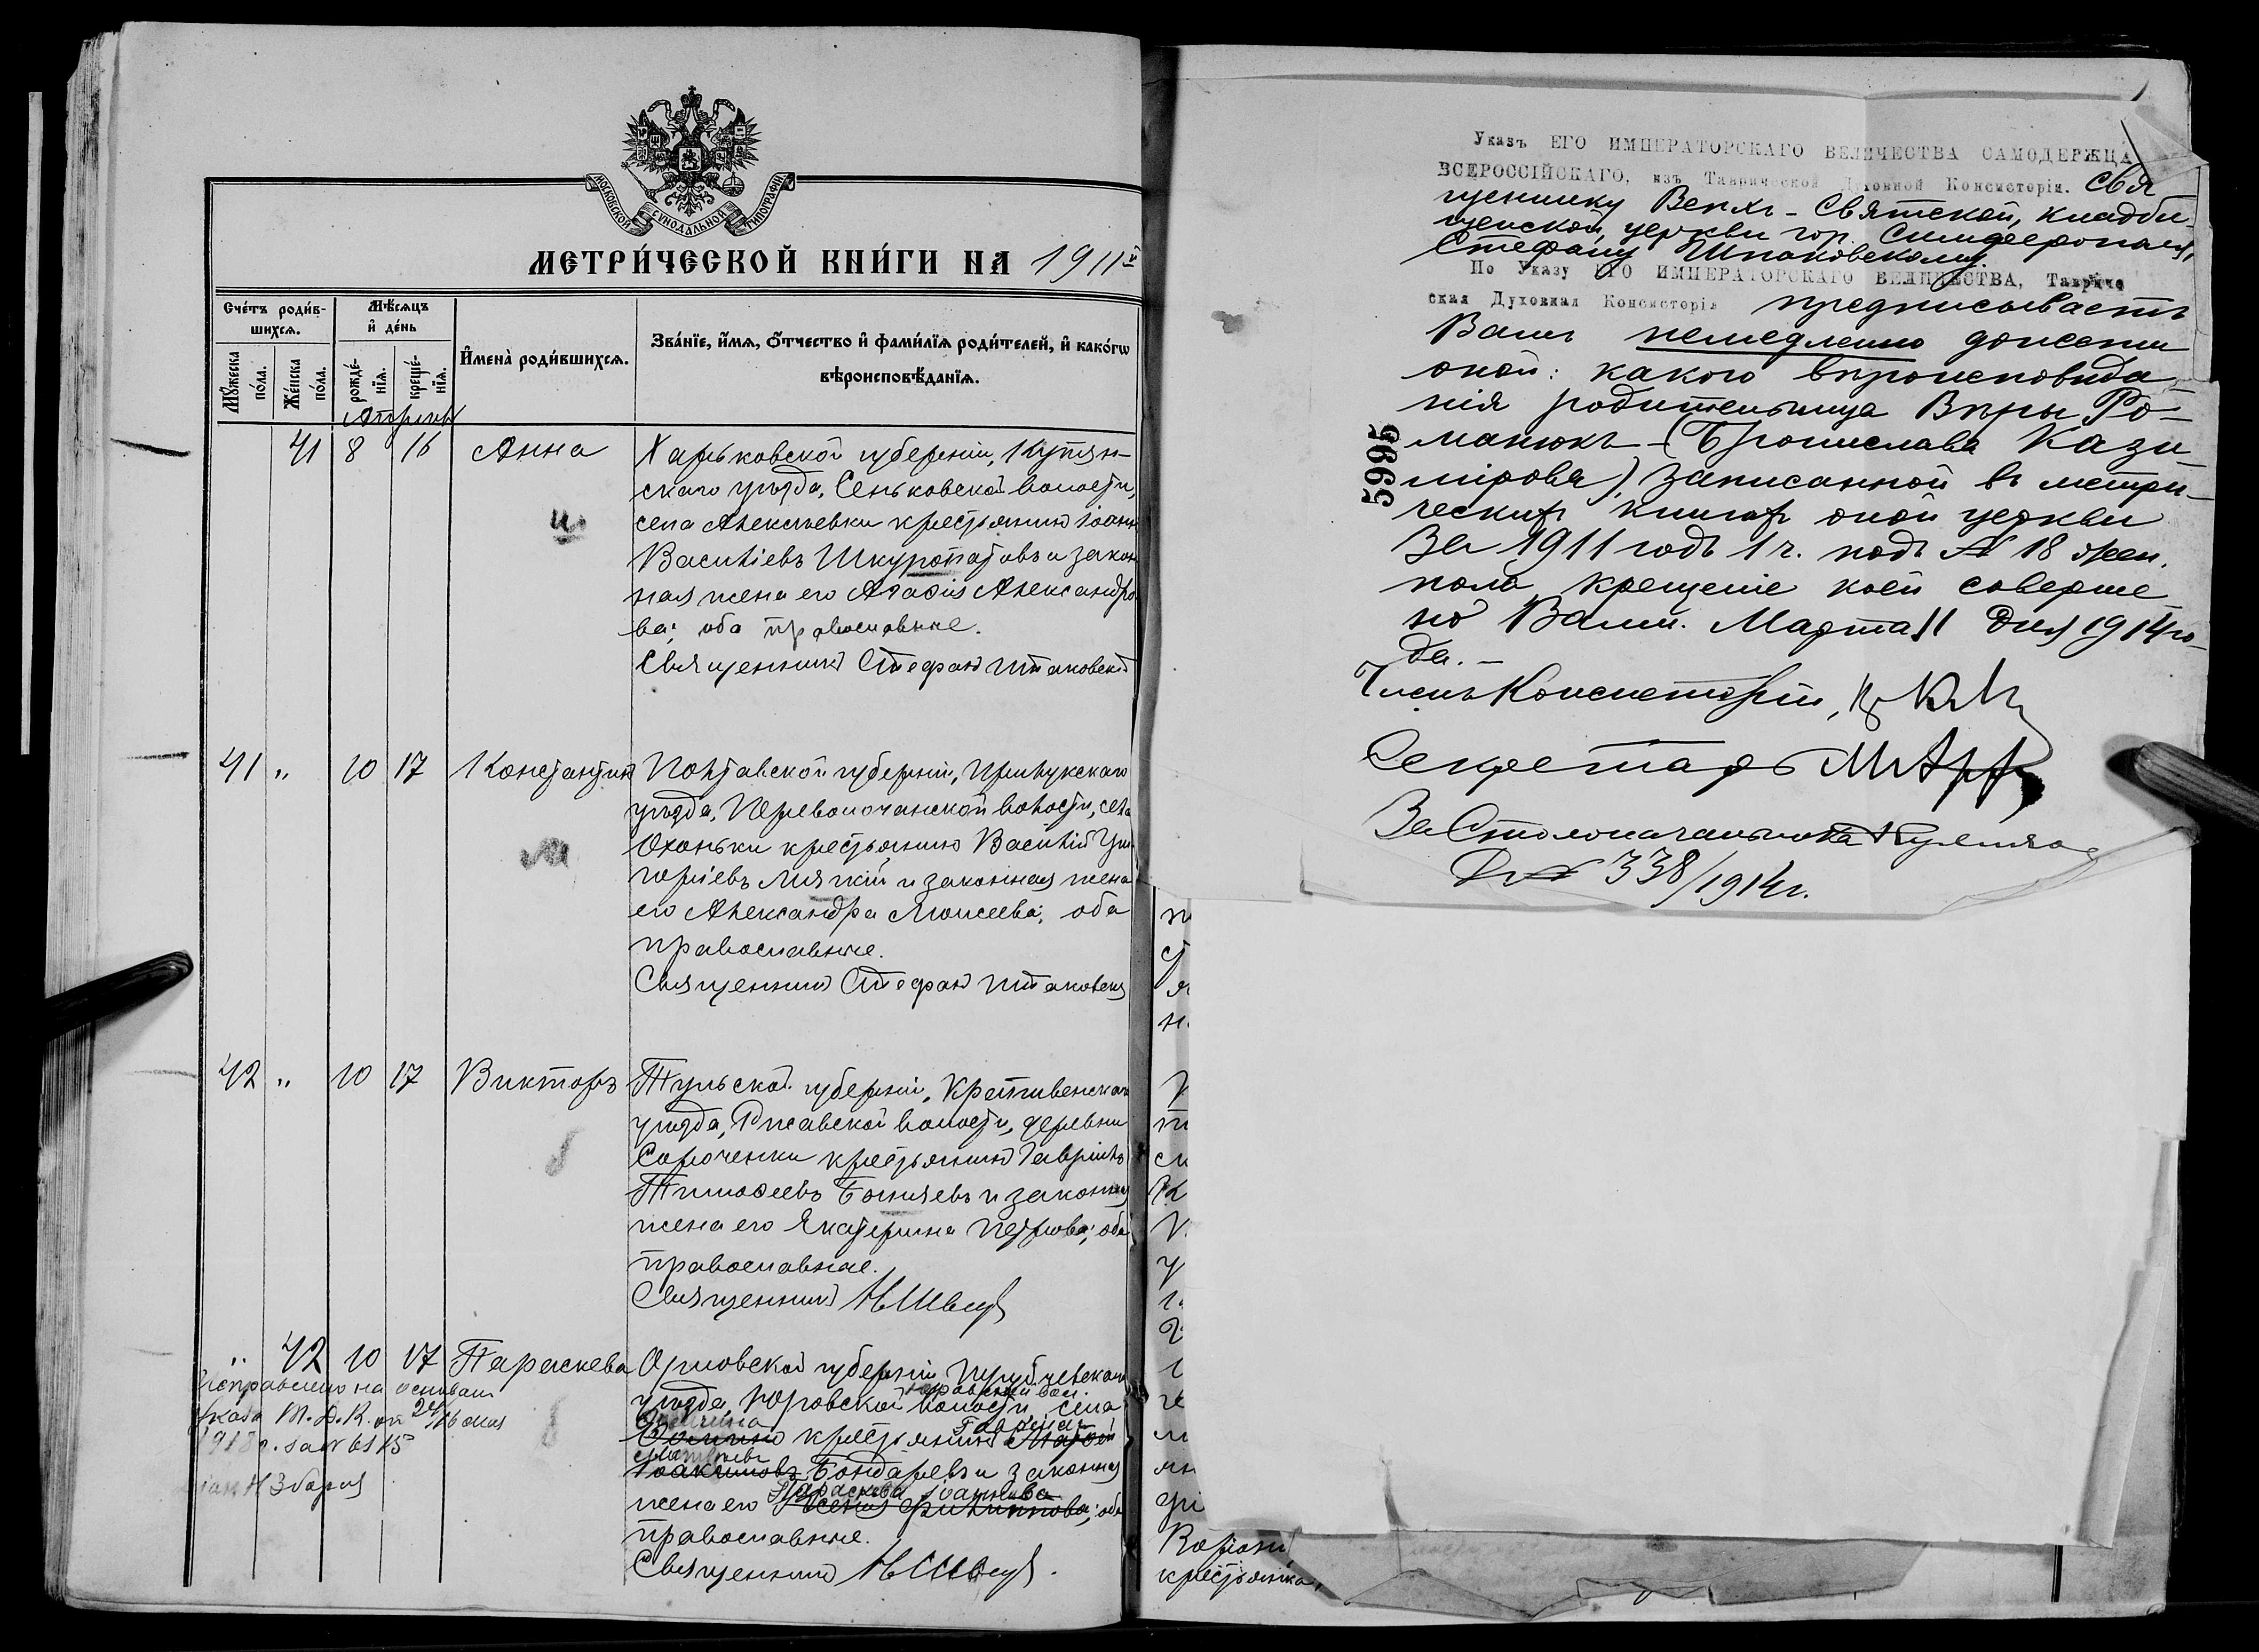 МОСКОВСКОЙ СѴНОДАЛЬНОЙ ТИПОГРАФІИ
МЕТРИ́ЧЕСКОЙ КНИ́ГИ НА 1911й
Сче́тъ роди́в-
шихся.
Мѣ́сяцъ
и҆ де́нь
Мꙋ́жеска
по́ла.
Же́нска
по́ла.
рожде́-
нїя.
креще́-
нїя.
И҆мена̀ роди́вшихся.
Зва́нїе, и҆́мя, ѻ҆́тчество и҆ фами́лїя роди́телей, и҆ како́гѡ
вѣроисповѣ́данїя.
Апрѣль
41 8 16 Анна Харьковской губерніи, Купян-
скаго уѣзда, Сеньковской волости,
села Алексѣевки крестьянинъ Іоаннъ
Василіевъ Шкуропатовъ и закон-
ная жена его Агафія Александро-
ва; оба православные.
Священникъ Стефанъ Шпаковскій
41 " 10 17 Константинъ Полтавской губерніи, Прилукскаго
уѣзда, Переволочанской волости, села
Оханьки крестьянинъ Василій Гри-
горіевъ Мягкій и законная жена
его Александра Моисеева; оба
православные.
Священникъ Стефанъ Шпаковскій
42 " 10 17 Викторъ Тульской губерніи, Крапивенскаго
уѣзда, Ржавской волости, деревни
Сороченки крестьянинъ Гавріилъ
Тимоѳеевъ и законная
жена его Екатерина Петрова; оба
православные.
Священникъ
" 42 10 17 Параскева Орловской губерніи, Трубчевскаго
Исправлено на основаніи
указа Т. Д. К. от 24/26 мая
1918 г. за № 6115
уѣзда, Юровской волости, села
крестьянинъ
Іоакимовъ Бондаревъ и законная
Параскева Іоаннова
жена его Ксенія Филиппова; оба
православные.
Священникъ
Указъ ЕГО ИМПЕРАТОРСКАГО ВЕЛИЧЕСТВА САМОДЕРЖЦА
ВСЕРОССІЙСКАГО, изъ Таврической Духовной Консисторіи. Свя-
щеннику Всѣхъ-Святской, кладби-
щенской, церкви гор. Симферополя,
Стефану Шпаковскому.
По Указу ЕГО ИМПЕРАТОРСКАГО ВЕЛИЧЕСТВА, Тавриче
ская Духовная Консисторія предписываетъ
Вамъ немедленно донести
оной: какого вѣроисповѣда-
нія родительница Вѣры Ро-
манюкъ (Бронислава Кази-
мірова), записанной въ метри-
ческихъ книгахъ оной церкви
За 1911 годъ 1 ч. подъ № 18 жен.
пола, крещеніе коей соверше-
но Вами. Марта 11 дня 1914 го-
да.-
Членъ Консисторіи,
Секретарь
За Столоначальника
Д № 338/1914 г.
5985
крестьянка,